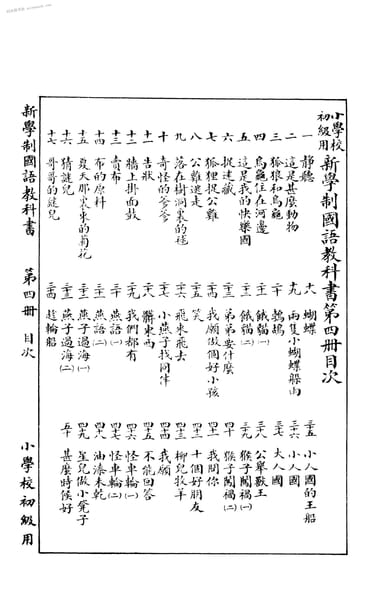 小學校初級用
新學制國語教科書第四冊目次
一 靜聽
二 這是甚麼動物
三 狐狼和烏龜
四 烏龜住在河邊
五 這是我的快樂國
六 捉迷藏
七 狐狸捉公雞
八 公雞逃走
九 落在樹洞裏的毬
十 奇怪的爹爹
十一 告狀
十二 牆上掛面鼓
十三 賣布
十四 布的原料
十五 夏天那裏來的菊花
十六 猜謎兒
十七 哥哥的謎兒
十八 蝴蝶
十九 兩隻小蝴蝶躲雨
二十 鸚鵡
二十一 餓貓(一)
二十二 餓貓(二)
二十三 弟弟要什麼
二十四 我願做個好小孩
二十五 笑
二十六 飛來飛去
二十七 小燕子找同伴
二十八 髒東西
二十九 我們都有
三十 燕語(一)
三十一 燕語(二)
三十二 燕子過海(一)
三十三 燕子過海(二)
三十四 趁輪船
三十五 小人國的王船
三十六 小人國
三十七 大人國
三十八 公舉獸王
三十九 猴子闖禍(一)
四十 猴子闖禍(二)
四十一 我問你
四十二 十個好朋友
四十三 柳兒牧羊
四十四 我願
四十五 不能回答
四十六 怪車輪(一)
四十七 怪車輪(二)
四十八 油漆未乾
四十九 星兒做小凳子
五十 甚麼時候好
新學制國語教科書 第四冊 目次 小學校初級用